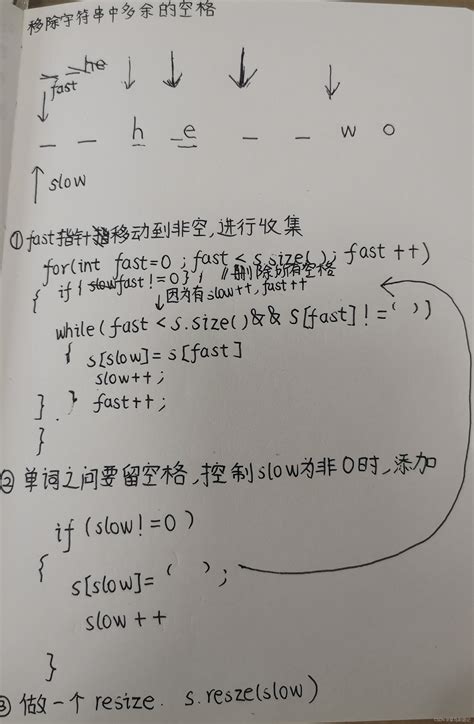 移除字符串中多余的空格
he
fast
_ _ h e _ _ w o
slow
① fast指针移动到非空,进行收集
for(int fast=0; fast < s.size(); fast ++)
{ if( fast != 0) { // 删除所有空格
因为有slow++, fast++
while(fast < s.size() && s[fast] != ' ')
{ s[slow] = s[fast]
slow++;
} } fast++;
}
② 单词之间要留空格,控制slow为非0时,添加
if (slow != 0)
{ s[slow] = ' ';
slow ++
}
③ 做一个 resize. s.resze(slow)